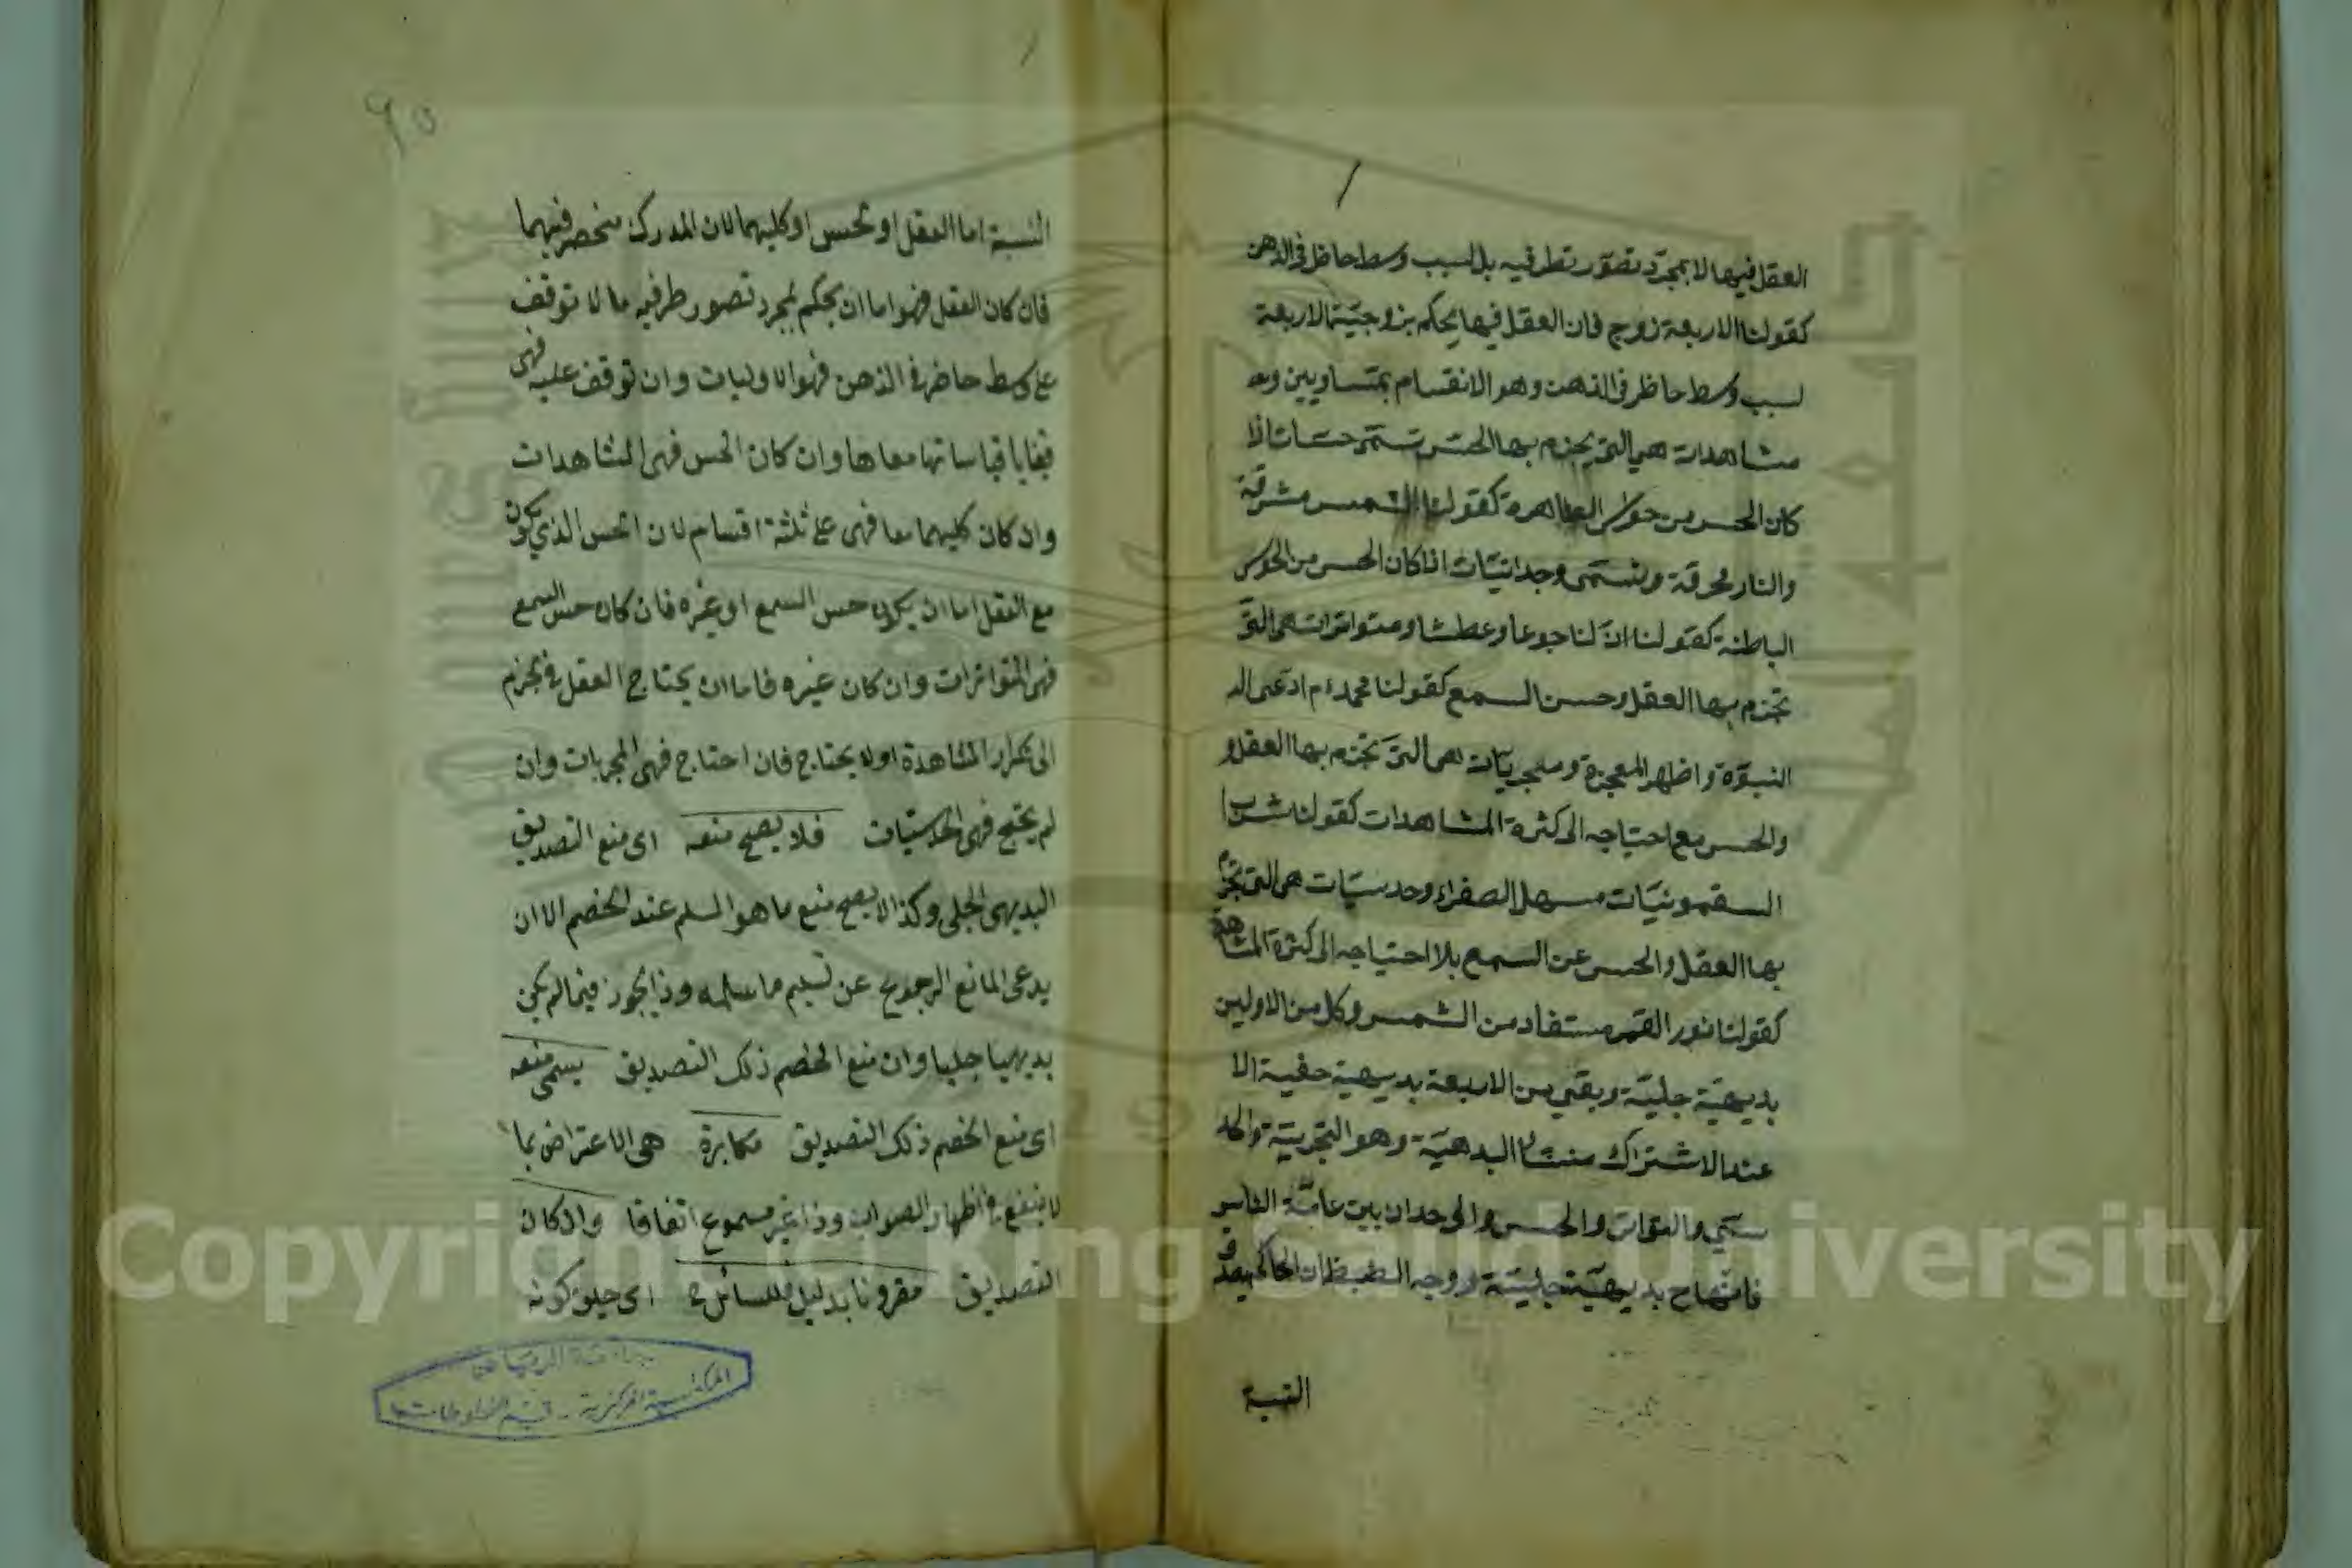 العقل فيها لا بمجرد تصور نظر فيه بل لسبب وسط حاظر في الذهن
كقولنا الاربعة زوج فان العقل فيها يحكم بزوجية الاربعة
لسبب وسط حاظر في الذهن وهو الانقسام بمتساويين
مشاهدات هي التي يجزم بها الحس
كان الحس من حواس الظاهرة كقولنا الشمس مشرقة
والنار محرقة وتسمى وجدانيات اذا كان الحس من الحواس
الباطنة كقولنا ان لنا جوعا وعطشا ومتواترات هي التي
تجزم بها العقل وحس السمع كقولنا محمد ادعى
النبوة واظهر المعجزة هي التي تجزم بها العقل و
والحس مع احتياجه الى كثرة المشاهدات كقولنا شرب
السقمونيات مسهل الصفراء وحدسيات هي التي تجزم
بها العقل والحس عن السمع بلا احتياجه الى كثرة المشاهدة
كقولنا نور القمر مستفاد من الشمس وكل من الاولين
بديهية جلية وبقي من الاربعة بديهية خفية الا
عند الاشتراك البدهية وهو التجربية
والحس بين عامة الناس
بديهية جلية ووجه الضبط ان الحاكم
النسبة
٩٥
النسبة اما العقل او الحس او كليهما لان المدرك منحصر فيهما
فان كان العقل فهو اما ان يحكم بمجرد تصور طرفيه مالا توقف
على وسط حاضر في الذهن فهو الاوليات وان توقف عليه فهى
قضايا قياساتها معاها وان كان الحس فهى المشاهدات
وان كان كليهما معا فهى على ثلثة اقسام لان الحس الذي يكون
مع العقل اما ان يكون حس السمع او غيره فان كان حس السمع
فهى المتواترات وان كان غيره فاما ان يحتاج العقل في الجزم
الى تكرار المشاهدة اولا يحتاج فان احتاج فهى المجربات وان
لم يحتج فهى الحدسيات فلا يصح منعه اى منع التصديق
البديهى الجلى وكذا لا يصح منع ما هو المسلم عند الخصم الا ان
يدعى المانع الرجوع عن تسليم ما سلمه وذا يجوز فيما لم يكن
بديهيا جليا وان منع الخصم ذلك التصديق يسمى منعه
اى منع الخصم ذلك التصديق مكابرة هى الاعتراض بما
لا ينفع في اظهار الصواب وذا غير مسموع اتفاقا وان كان
التصديق مقرونا بدليل فللسائل اى حين كونه
جامعة الرياض
المكتبة المركزية - قسم المخطوطات
Copyright (c) King Saud University